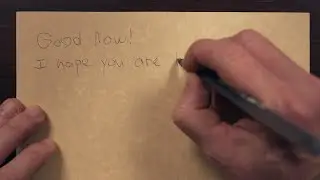 Good Dow!
I hope you are